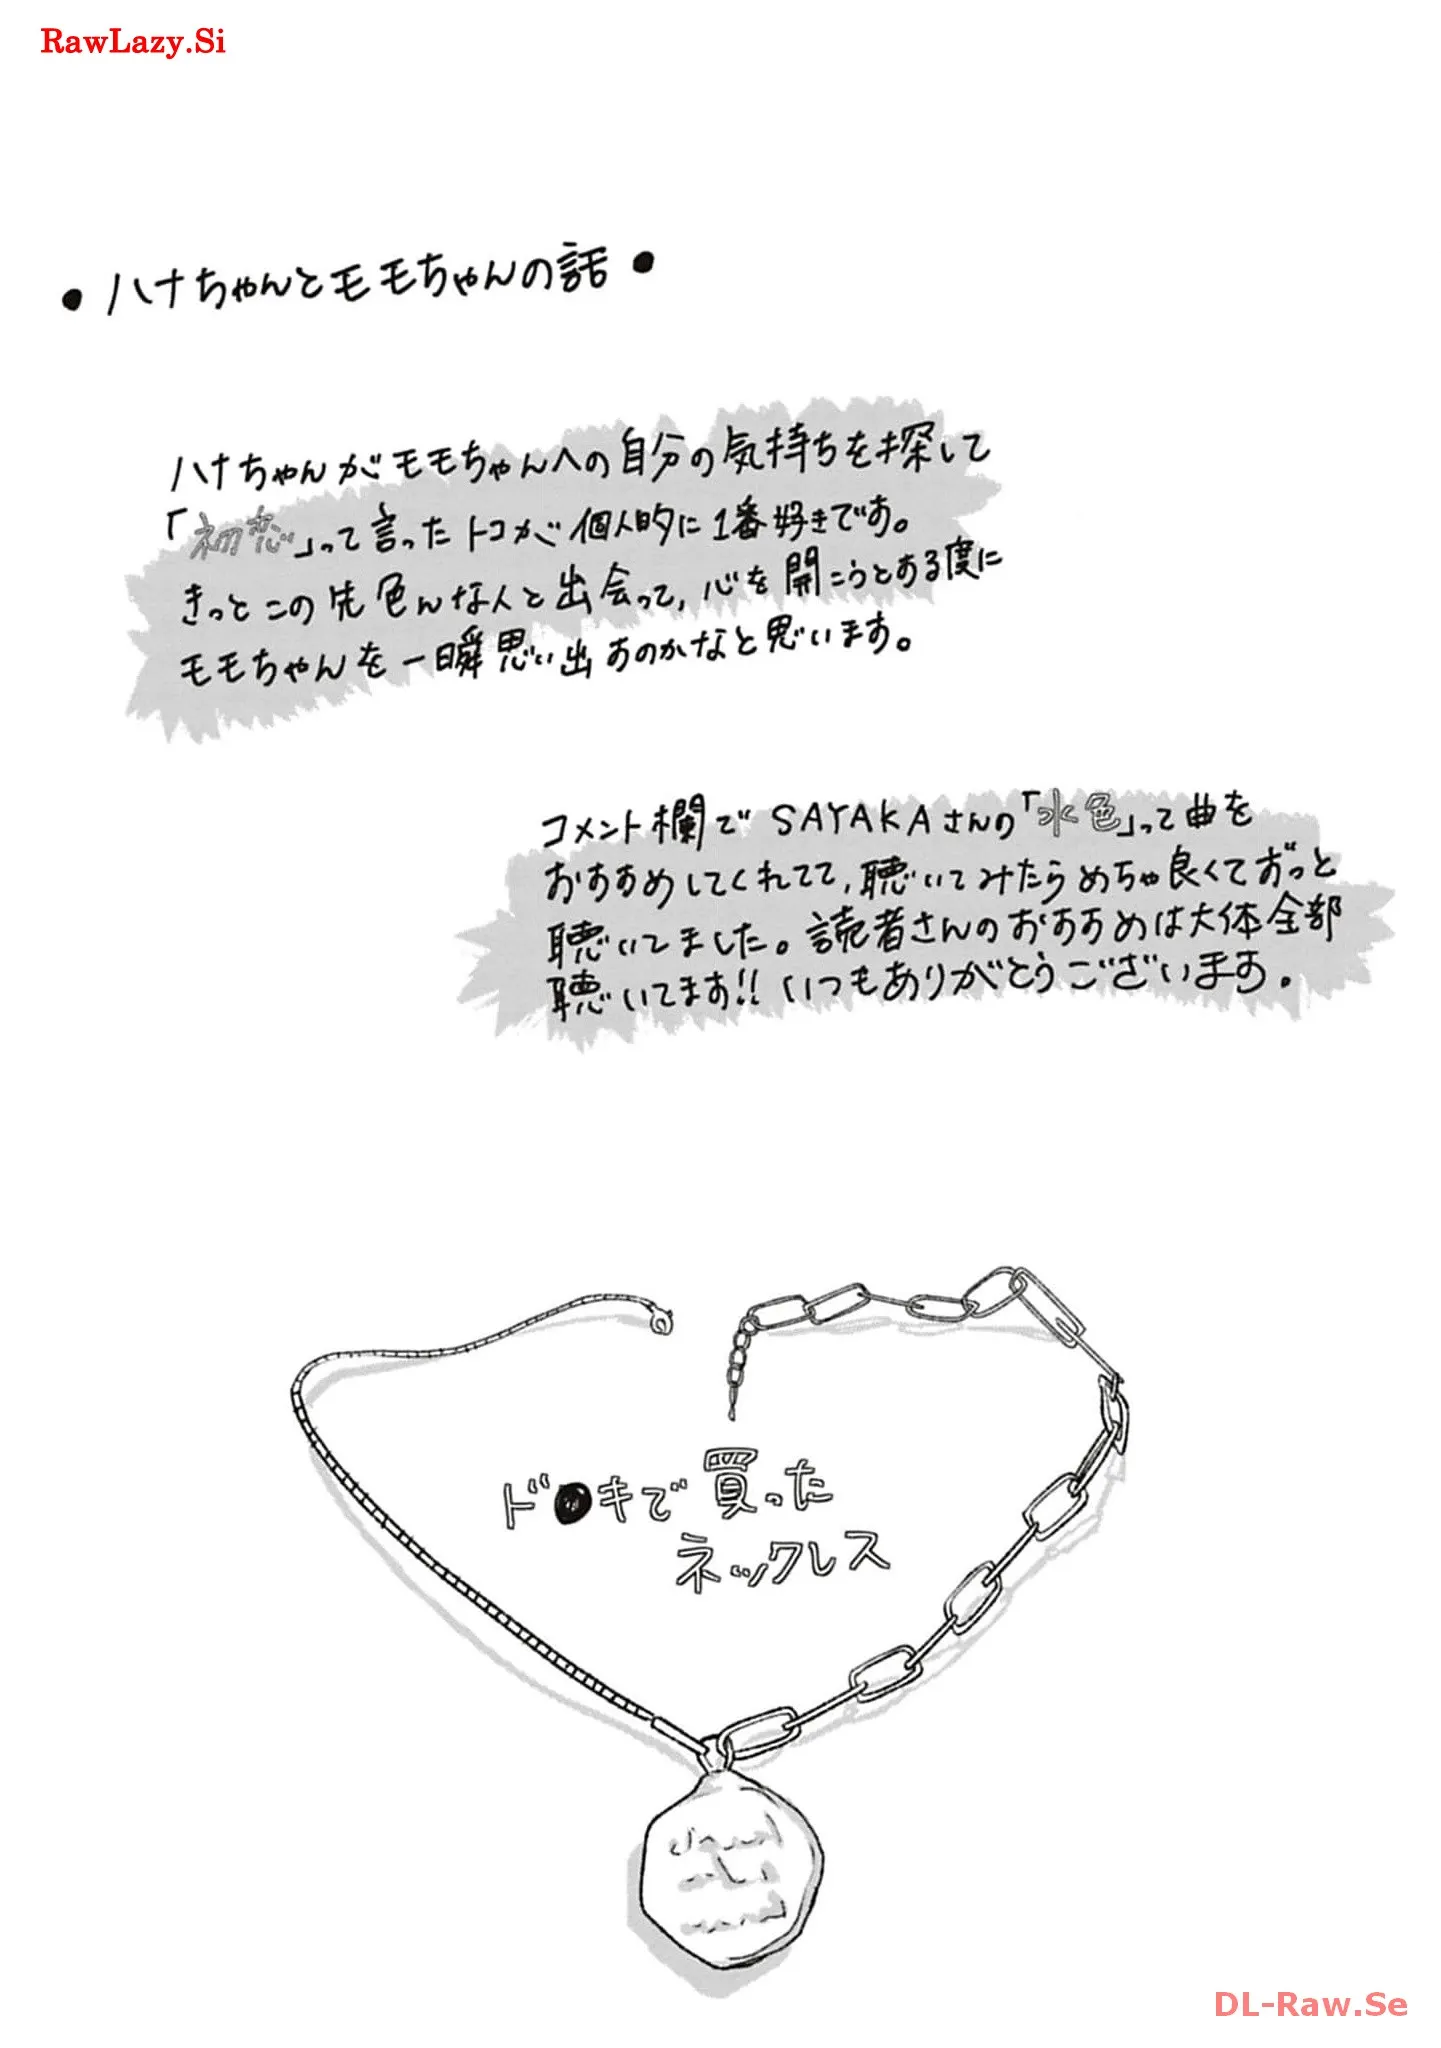 RawLazy.Si
•ハナちゃんとモモちゃんの話•
ハナちゃんがモモちゃんへの自分の気持ちを探して
「初恋」って言ったトコが個人的に1番好きです。
きっとこの先色んな人と出会って、心を開こうとある度に
モモちゃんを一瞬思い出すのかなと思います。
コメント欄でSAYAKAさんの「水色」って曲を
おすすめしてくれてて、聴いてみたらめちゃ良くてずっと
聴いてました。読者さんのおすすめは大体全部
聴いてます!!いつもありがとうございます。
ド●キで買った
ネックレス
DL-Raw.Se